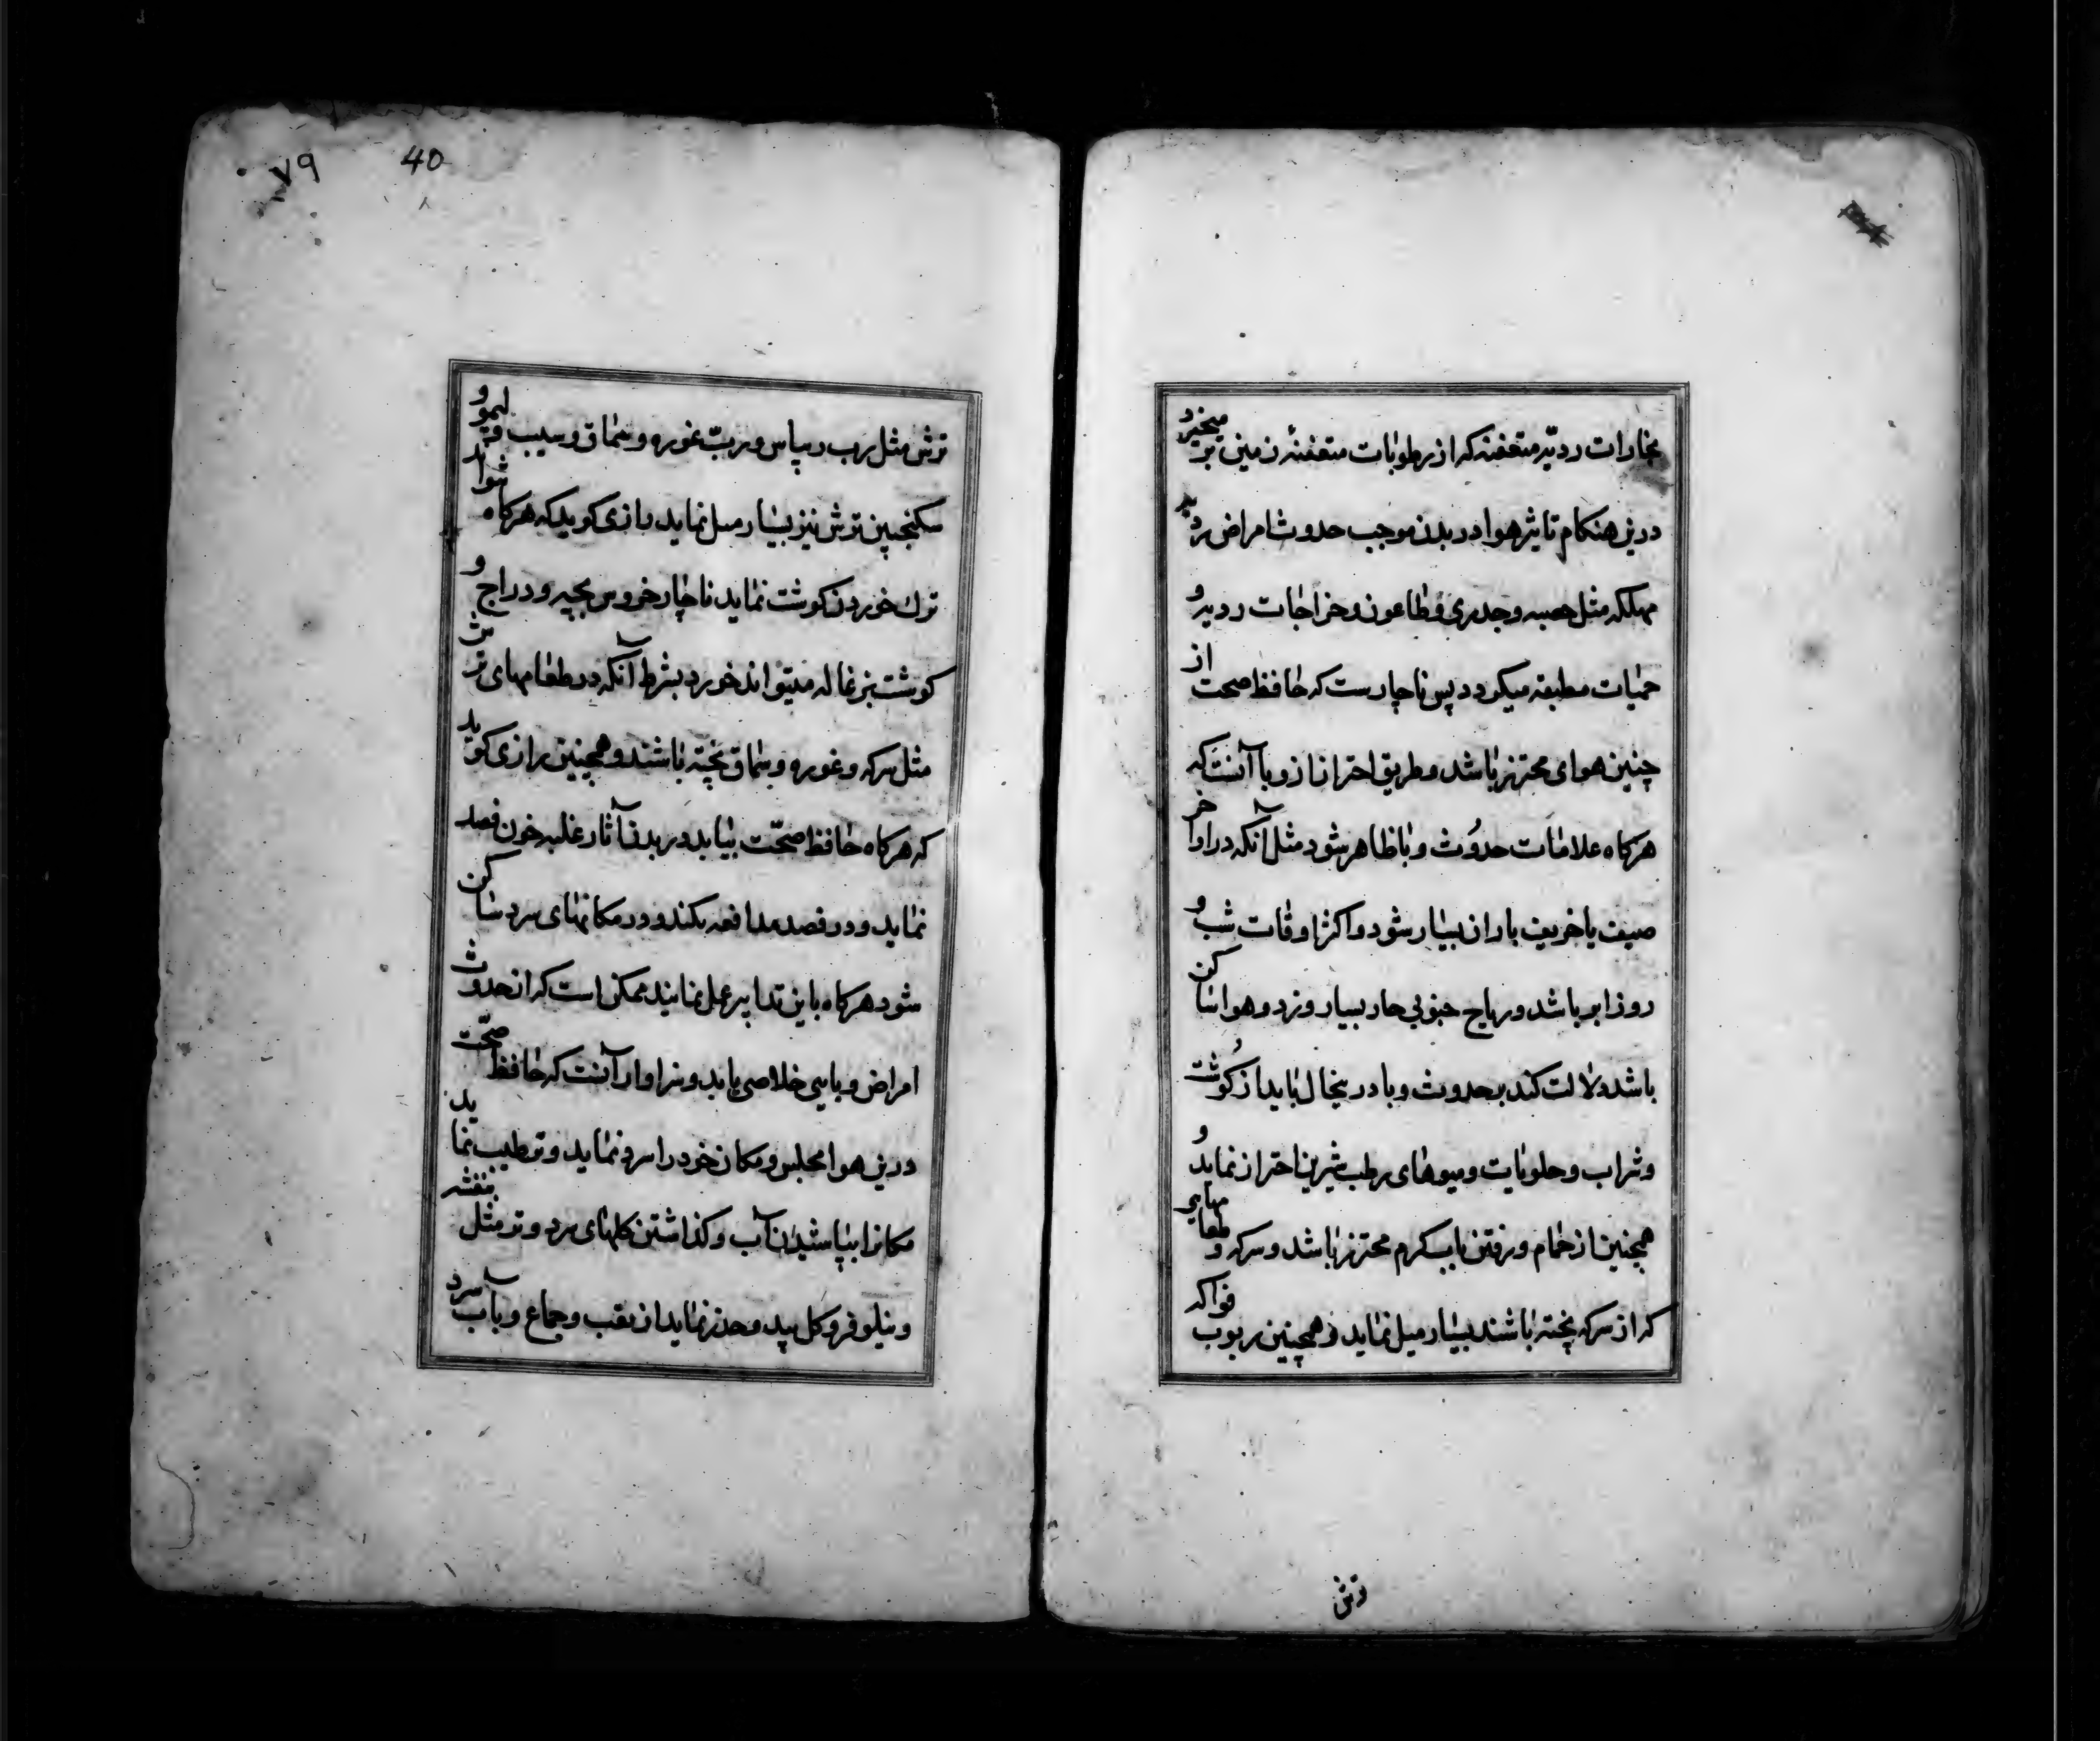 بخارات ردیّه متعفنه که از رطوبات متعفنهٔ زمین بر میخیزد
درین هنکام تاثیر هوا در بدن موجب حدوث امراض ردیه
مهلکه مثل حصبه و جدری و طاعون و خراجات ردیه و
حمیات مطبقه میکردد پس ناچارست که حافظ صحت از
چنین هوای محترز باشد و طریق احتراز از وبا آنست که
هرکاه علامات حدوث وبا ظاهر شود مثل آنکه در اواخر
صیف یا خریف باران بسیار شود و اکثر اوقات شب و
روز ابر باشد و ریاح جنوبی حار بسیار وزد و هوا ساکن
باشد دلالت کند بر حدوث وبا درینحال باید از کوشت
و شراب و حلویات و میوهای رطب شیرین احتراز نماید و
همچنین از حمام و رفتن بآب کرم محترز باشد و سرکه و طعامهایی
که از سرکه پخته باشند بسیار میل نماید و همچنین ربوب فواکه
ترش
٧٩
40
ترش مثل رب ریباس و ربّ غوره و سماق و سیب و لیمو و
سکنجبین ترش نیز بسیار میل نماید رازی کوید که هرکاه نتواند
ترك خوردن کوشت نماید ناچار خروس بچه و دراج و
کوشت بزغاله میتواند خورد بشرط آنکه در طعامهای ترش
مثل سرکه و غوره و سماق پخته باشند و همچنین رازی کوید
که هرکاه حافظ صحّت بیابد در بدن آثار غلبه خون فصد
نماید و در فصد مدافعه نکند و در مکانهای سرد ساکن
شود هرکاه باین تدابیر عمل نمایند ممکن است که از حدوث
امراض وبایی خلاصی یابد و سزاوار آنست که حافظ صحّت
درین هوا مجلس و مکان خود را سرد نماید و ترطیب نماید
مکانرا بپاشیدن آب و کذاشتن کلهای سرد و تر مثل بنفشه
و نیلوفر و کل بید و حذر نماید از تعب و جماع و بآب سرد